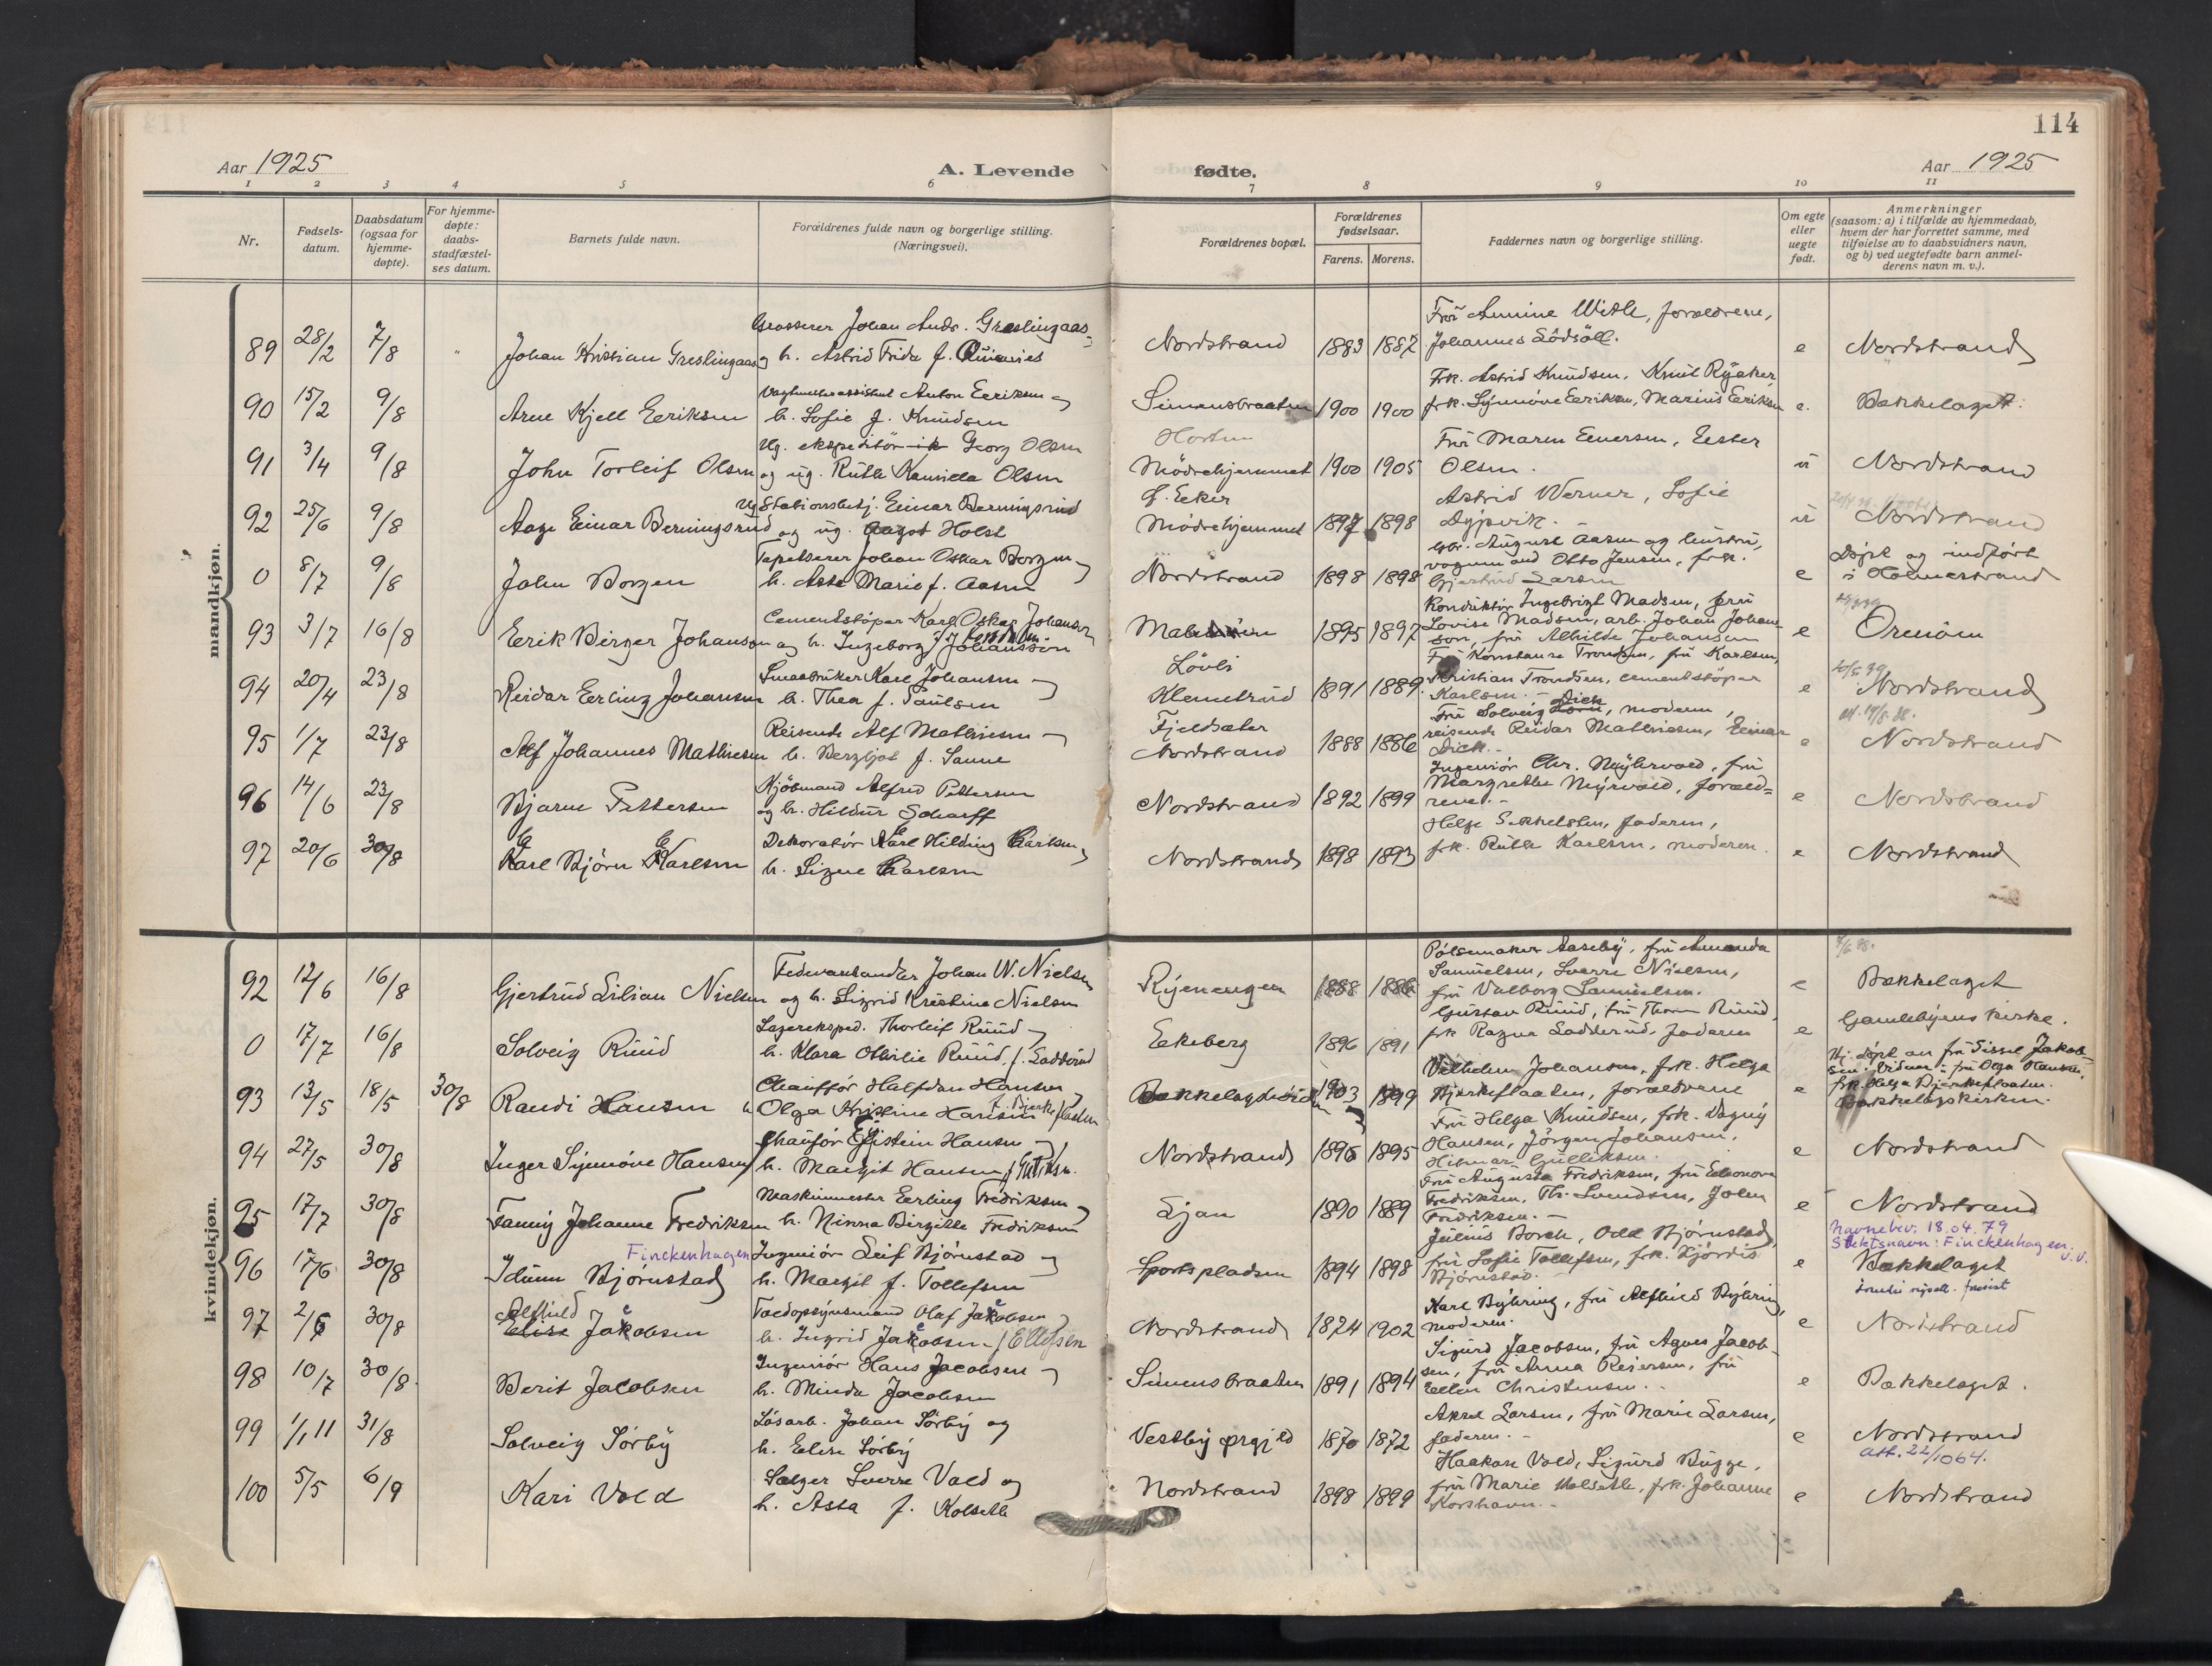 114
Aar 1925
A. Levende fødte.
Aar 1925
1 2 3 4 5 6 7 8 9 10 11
Nr.
Fødsels-
datum.
Daabsdatum
(ogsaa for
hjemme-
døpte).
For hjemme-
døpte:
daabs-
stadfæstel-
ses datum.
Barnets fulde navn.
Forældrenes fulde navn og borgerlige stilling.
(Næringsvei).
Forældrenes bopæl.
Forældrenes
fødselsaar.
Farens. Morens.
Faddernes navn og borgerlige stilling.
Om egte
eller
uegte
født.
Anmerkninger
(saasom: a) i tilfælde av hjemmedaab,
hvem der har forrettet samme, med
tilføielse av to daabsvidners navn,
og b) ved uegtefødte barn anmel-
derens navn m. v.).
mandkjøn.
89 28/2 7/8 " Johan Kristian Greslingaas
Grosserer Johan Andr. Greslingaas
og h. Astrid Frida f.
Nordstrand 1883 1887
Fru Annine With, forældrene,
Johannes
e Nordstrand
90 15/2 9/8 Arne Kjell Eeriksen
Anton Eeriksen og
h. Sofie f. Knudsen
Simensbraaten 1900 1900
Frk. Astrid Knudsen, Knut Ryaker,
frk. Synnöve Eeriksen, Marius Eeriksen
e. Bækkelaget.
91 3/4 9/8 John Torleif Olsen
Ug. ekspeditör Georg Olsen
og ug. Ruth Kamilla Olsen
Horten
Mödrehjemmet 1900 1905
Fru Maren Evensen, Ester
Olsen.
u Nordstrand
92 25/6 9/8 Aage Einar Berningsrud
Ug. Stationsbetj. Einar Berningsrud
og ug. Aagot Holst
Ö. Eeker
Mödrehjemmet 1897 1898
Astrid Werner, Sofie
Dypvik. -
u Nordstrand
0 8/7 9/8 John Borgen
Tapetserer Johan Oskar Borgen
h. Asta Marie f. Aasen
Nordstrand 1898 1898
Gbr. August Aasen og hustru,
vognmand Otto Jensen, frk.
Gjertrud Larsen
e Döpt og indfört
i Holmestrand
93 3/7 16/8 Eerik Birger Johanson
Cementstöper Karl Oskar Johanson
og h. Ingeborg f. Johansson
1895 1897
Konduktör Ingebrigt Madsen, fru
Lovise Madsen, arb. Johan Johan-
son, fru Alhilde Johansen
e Orenöen
94 20/4 23/8 Reidar Eerling Johansen
Smaabruker Karl Johansen
h. Thea f. Paulsen
Lövli
Klemetsrud 1891 1889
Fru Konstance Trondsen, fru Karlsen,
Kristian Trondsen, cementstöper
Karlsen. -
e 20/5 39
Nordstrand
95 1/7 23/8 Alf Johannes Mathiesen
Reisende Alf Mathiesen
h. Bergljot f. Sanne
Fjeldsæter
Nordstrand 1888 1886
Fru Solveig Dick, moderen,
reisende Reidar Mathiesen, Einar
Dick. -
e Nordstrand
96 14/6 23/8 Bjarne Pettersen
Kjöbmand Alfred Pettersen
og h. Hildur Scharff
Nordstrand 1892 1899
Ingeniör Chr. Myhrvold, fru
Margrethe Myrvold, foræld-
rene. -
e Nordstrand
97 20/6 30/8 Karl Björn Karlsen
Dekoratör Karl Hilding Carlsen
h. Signe Carlsen
Nordstrand 1898 1893
Helge Eskelsten, faderen,
frk. Ruth Karlsen, moderen.
e Nordstrand
kvindekjøn.
92 12/6 16/8 Gjertrud Lilian Nielsen
Fedevarehandler Johan W. Nielsen
og h. Sigrid Kristine Nielsen
Ryenengen 1888 1886
Pölsemaker Aaseby, fru Amanda
Samuelsen, Sverre Nielsen,
fru Valborg Samuelsen.
e Bækkelaget
0 17/7 16/8 Solveig Ruud
Lagereksped. Thorleif Ruud
h. Klara Othilie Ruud, f. Ladderud
Eekeberg 1896 1891
Gustav Ruud, fru Thora Ruud,
frk Ragna Ladderud, faderen
e Gamlebyens kirke.
93 13/5 18/5 30/8 Randi Hansen
Chaufför Halfdan Hansen
h Olga Kristine Hansen f. Bjerkeflaaten
1903 1899
Vilhelm Johansen, frk. Helga
Bjerkeflaaten, forældrene
e Hj. döpt av fru Sissel Jakob-
sen. Vidner: fru Olga Hansen,
frk. Helga Bjerkeflaaten.
Bækkelagskirken.
94 27/5 30/8 Inger Synnöve Hansen
Chauför Eystein Hansen
h. Margit Hansen f. Gulliksen.
Nordstrand 1896 1895
Fru Helga Knudsen, frk. Dagny
Hansen, Jörgen Johansen,
Hilmar Gulliksen.
e Nordstrand
95 17/7 30/8 Fanny Johanne Fredriksen
Maskinmester Eerling Fredriksen
h. Ninna Birgitte Fredriksen
Ljan 1890 1889
Fru Augusta Fredriksen, fru Eleonora
Fredriksen, Th. Svendsen, John
Fredriksen. -
e Nordstrand
96 17/6 30/8 Idunn Björnstad Finckenhagen
Ingeniör Leif Björnstad
h. Margit f. Tollefsen
Sportspladsen 1894 1898
Julius Borch, Odd Björnstad,
fru Sofie Tollefsen, frk. Hjördis
Björnstad.
e Navnebev. 18.04.79
Slektsnavn: Finckenhagen
Bækkelaget
97 2/6 30/8 Alfhild Jakobsen
Toldopsynsmand Olaf Jakobsen
h. Ingrid Jakobsen f Ellefsen
Nordstrand 1874 1902
Karl Byhring, fru Alfhild Byhring,
moderen.
e Nordstrand
98 10/7 30/8 Berit Jacobsen
Ingeniör Hans Jacobsen
h. Minda Jacobsen
Simensbraaten 1891 1894
Sigurd Jacobsen, fru Agnes Jacob-
sen, fru Anna Reiersen, fru
Eellen Christensen. -
e Bækkelaget.
99 1/1 11 31/8 Solveig Sörby
Lösarb. Johan Sörby og
h. Elise Sörby
Vestby prgjld 1870 1872
Aksel Larsen, fru Marie Larsen,
faderen. -
e Nordstrand
att. 22/10 64.
100 5/5 6/9 Kari Vold
Selger Sverre Vold og
h. Asta f. Kolseth
Nordstrand 1898 1899
Haakon Vold, Sigurd Bugge,
fru Marie Kolseth, frk. Johanne
Korshavn. -
e Nordstrand